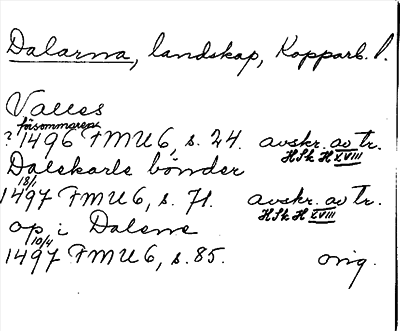 Dalarna, landskap, Kopparb. l.
Valles
försommaren
? 1496 FMU 6, s. 24. avskr. av tr.
HSk H XVIII
Dalskarls bönder
18/1
1497 FMU 6, s. 71. avskr. av tr.
HSk H XVIII
op i Dalene
10/4
1497 FMU 6, s. 85. orig.